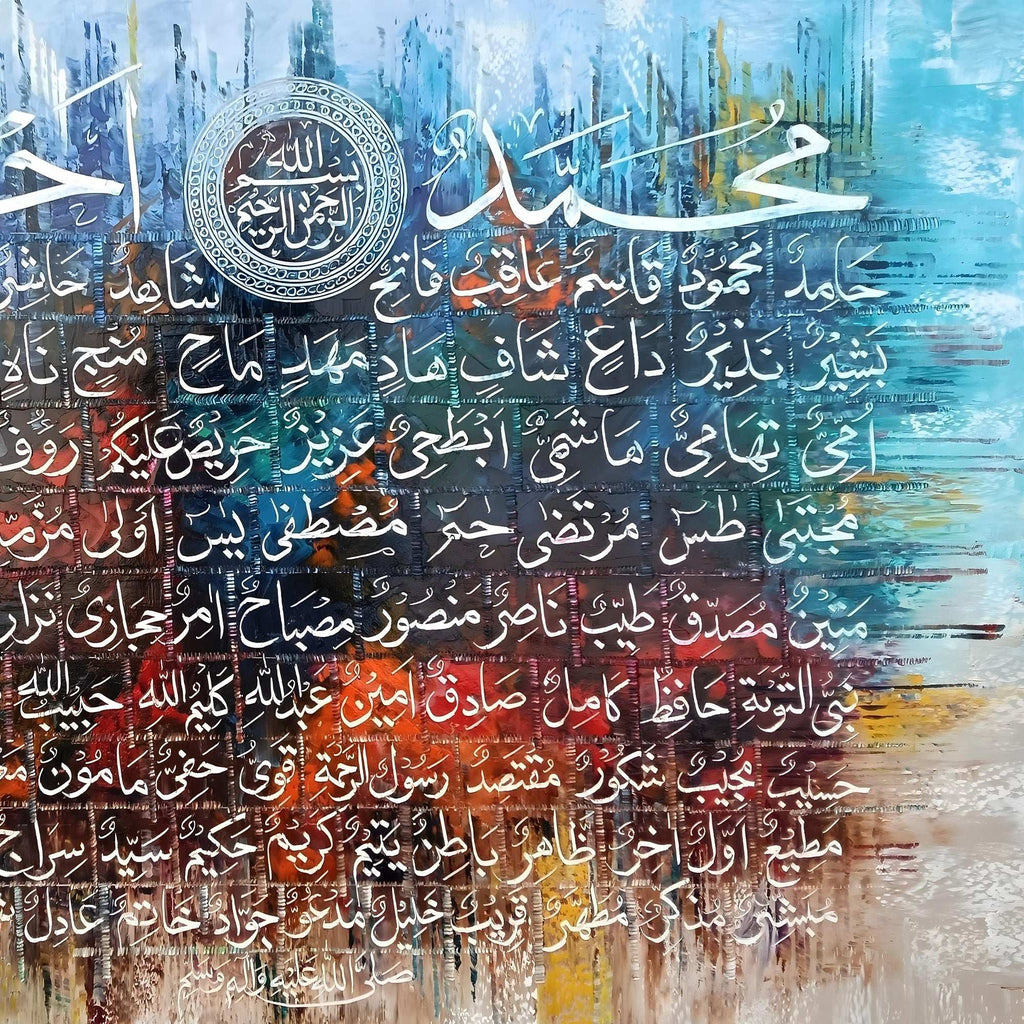 مُحَمَّدٌ
بِسْمِ اللهِ الرَّحْمٰنِ الرَّحِيْمِ
حَامِدٌ مَحْمُوْدٌ قَاسِمٌ عَاقِبٌ فَاتِحٌ شَاهِدٌ حَاشِرٌ
بَشِيْرٌ نَذِيْرٌ دَاعٍ شَافٍ هَادٍ مَهْدٍ مَاحٍ مُنْجٍ نَاهٍ
اُمِّىٌّ تِهَامِىٌّ هَاشَمِىٌّ اَبْطَحِىٌّ عَزِيْزٌ حَرِيْصٌ عَلَيْكُمْ رَؤُفٌ
مُجْتَبٰى طٰسٓ مُرْتَضٰى حٰمٓ مُصْطَفٰى يٰسٓ اَوْلٰى
مَتِيْنٌ مُصَدِّقٌ طَيِّبٌ نَاصِرٌ مَنْصُوْرٌ مِصْبَاحٌ اٰمِرٌ حِجَازِىٌّ
نَبِىُّ التَّوْبَةِ حَافِظٌ كَامِلٌ صَادِقٌ اَمِيْنٌ عَبْدُاللهِ كَلِيْمُ اللهِ حَبِيْبُ اللهِ
حَسِيْبٌ مُجِيْبٌ شَكُوْرٌ مُقْتَصِدٌ رَسُوْلُ الرَّحْمَةِ قَوِىٌّ حَفِىٌّ مَامُوْنٌ
مُطِيْعٌ اَوَّلٌ اٰخِرٌ ظَاهِرٌ بَاطِنٌ يَتِيْمٌ كَرِيْمٌ حَكِيْمٌ سَيِّدٌ سِرَاجٌ
مُبَشِّرٌ مُذَكِّرٌ مُطَهَّرٌ قَرِيْبٌ خَلِيْلٌ مَدْعُوٌّ جَوَّادٌ خَاتِمٌ عَادِلٌ
صَلَّى اللهُ عَلَيْهِ وَاٰلِهٖ وَسَلَّمَ